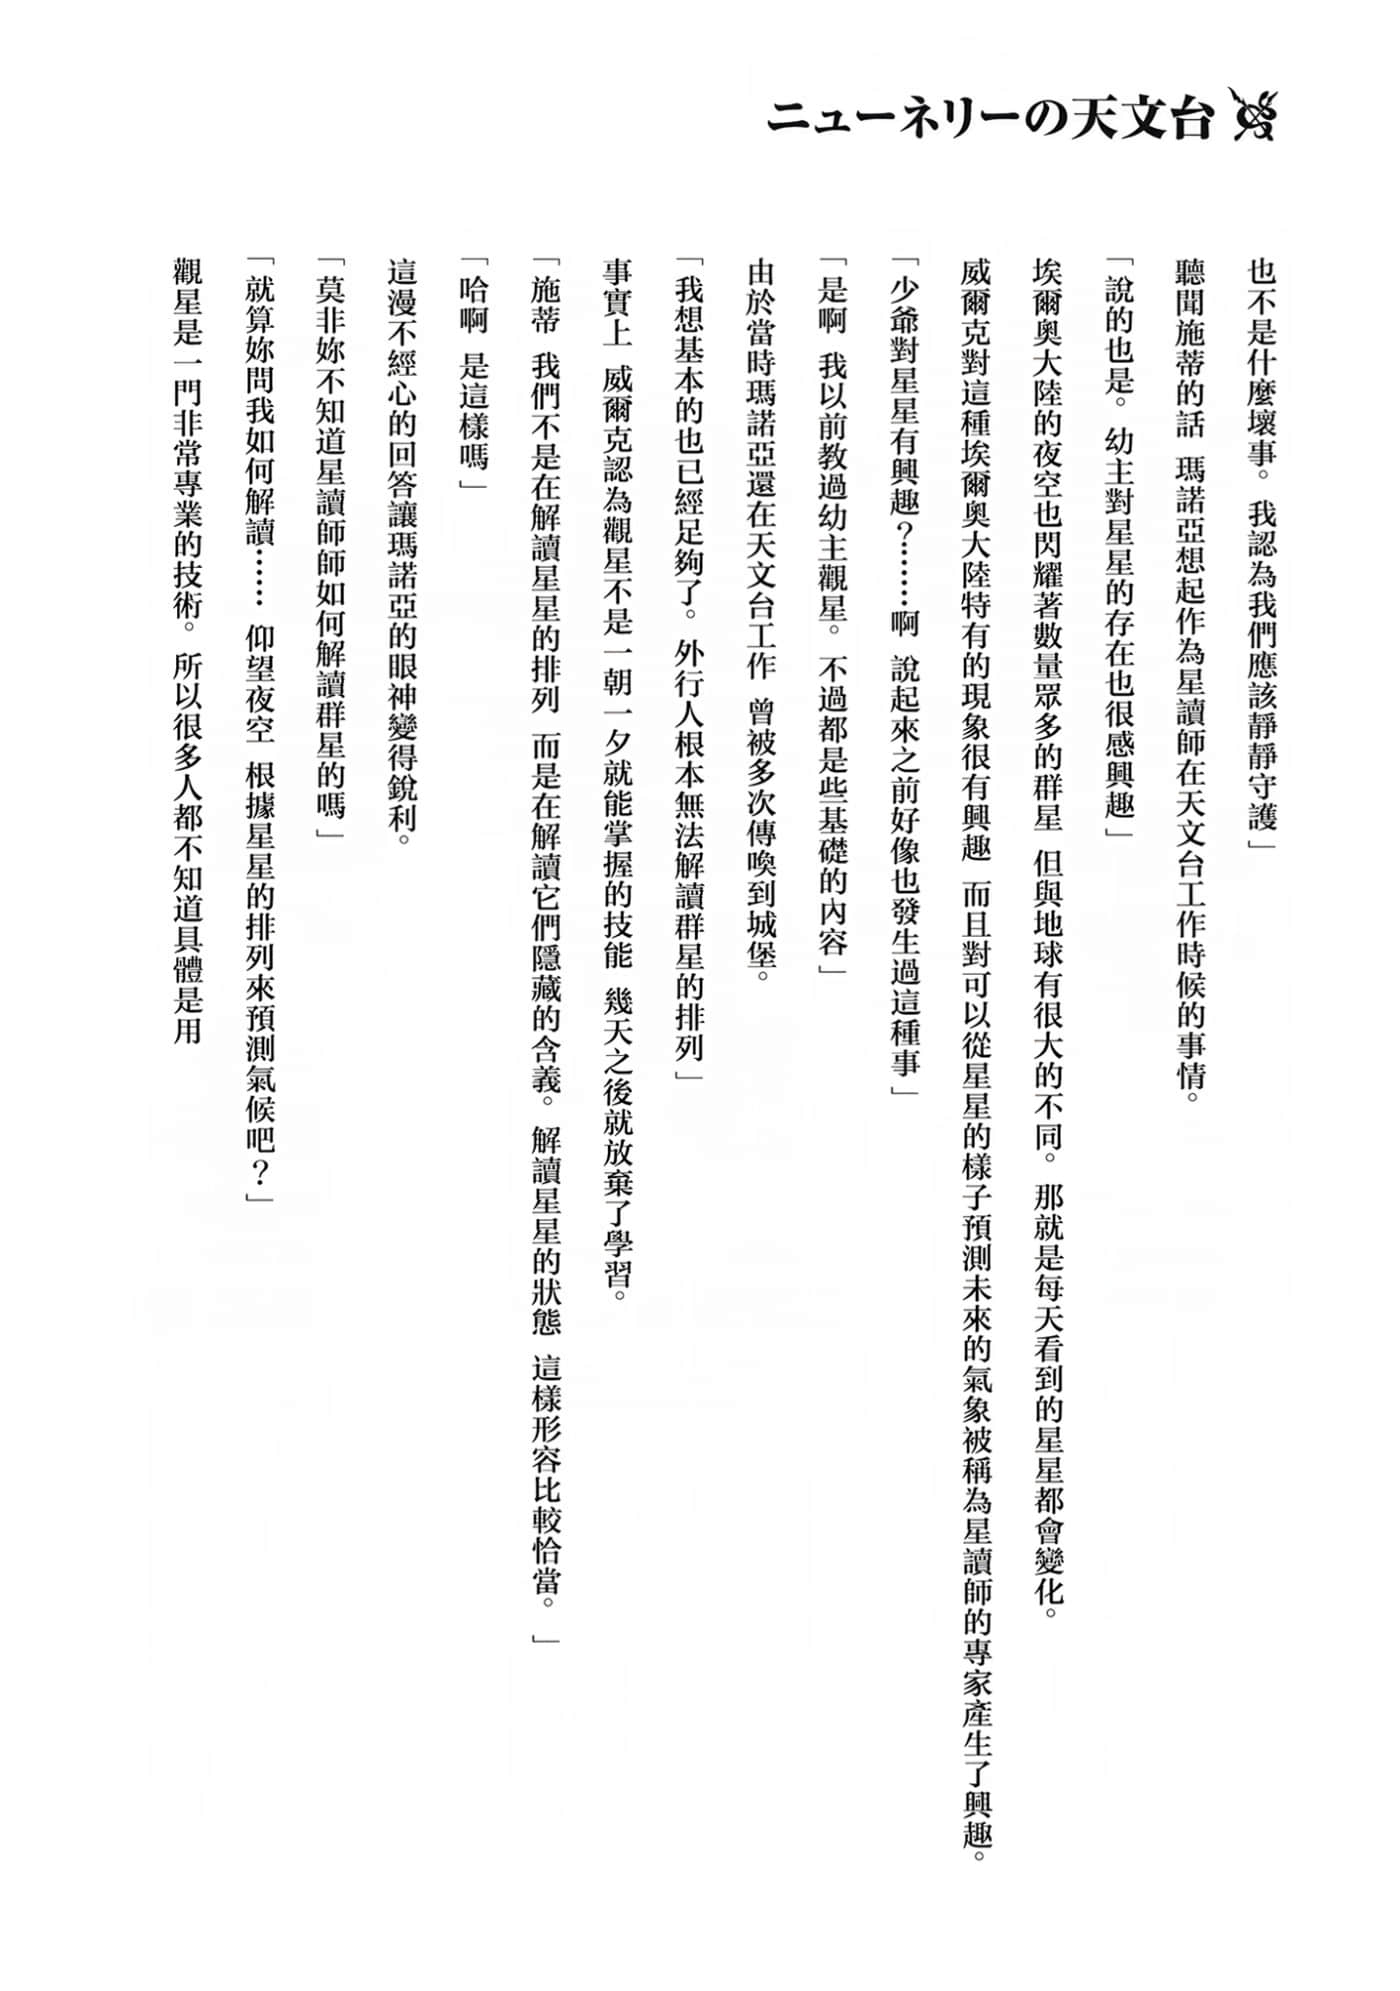 ニューネリーの天文台
也不是什麼壞事。我認為我們應該靜靜守護」
聽聞施蒂的話 瑪諾亞想起作為星讀師在天文台工作時候的事情。
「說的也是。幼主對星星的存在也很感興趣」
埃爾奧大陸的夜空也閃耀著數量眾多的群星 但與地球有很大的不同。那就是每天看到的星星都會變化。
威爾克對這種埃爾奧大陸特有的現象很有興趣 而且對可以從星星的樣子預測未來的氣象被稱為星讀師的專家產生了興趣。
「少爺對星星有興趣？………啊 說起來之前好像也發生過這種事」
「是啊 我以前教過幼主觀星。不過都是些基礎的內容」
由於當時瑪諾亞還在天文台工作 曾被多次傳喚到城堡。
「我想基本的也已經足夠了。外行人根本無法解讀群星的排列」
事實上 威爾克認為觀星不是一朝一夕就能掌握的技能 幾天之後就放棄了學習。
「施蒂 我們不是在解讀星星的排列 而是在解讀它們隱藏的含義。解讀星星的狀態 這樣形容比較恰當。」
「哈啊 是這樣嗎」
這漫不經心的回答讓瑪諾亞的眼神變得銳利。
「莫非妳不知道星讀師師如何解讀群星的嗎」
「就算妳問我如何解讀…… 仰望夜空 根據星星的排列來預測氣候吧？」
觀星是一門非常專業的技術。所以很多人都不知道具體是用